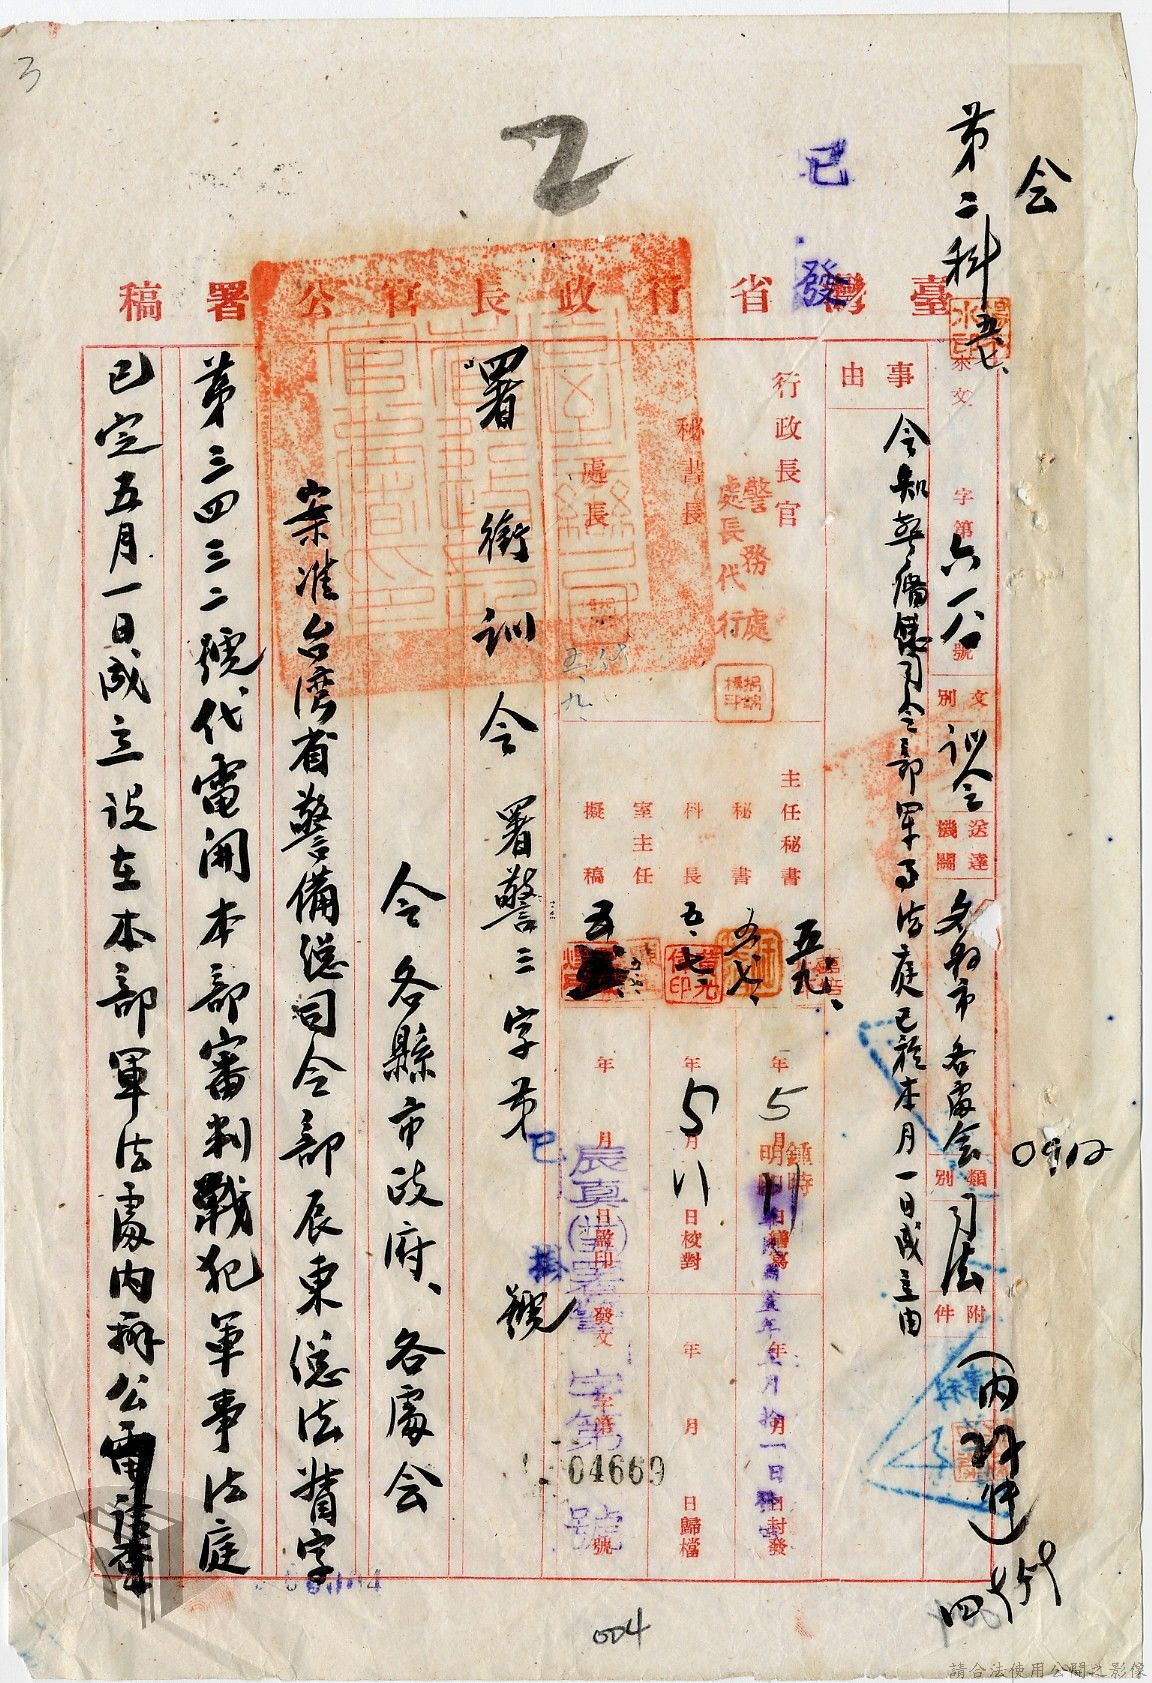 会
第二科
已發
臺灣省行政長官公署稿
來文 字第六一八號
文別 訓令
送達機關 各縣市 各處会
類別 司法
附件 (內附件)
事由
令知警備總司令部軍事法庭已於本月一日成立由
行政長官
警務處
處長代行
秘書長
處長
五、九、
主任秘書 五九、
秘書 五、七、
科長 五、七、
室主任
擬稿
5月11日繕寫
年5月八日校對
年 月 日蓋印
年 月 日封發
年 月 日歸檔
發文 字第 號
04669
已掛
署銜訓令 署警三字第 號
令各縣市政府、各處会
案准台灣省警備總司令部辰東總法督字
第三四三二號代電開本部審判戰犯軍事法庭
已定五月一日成立設在本部軍法處內辦公
0912
004
3
2
請合法使用公開之影像